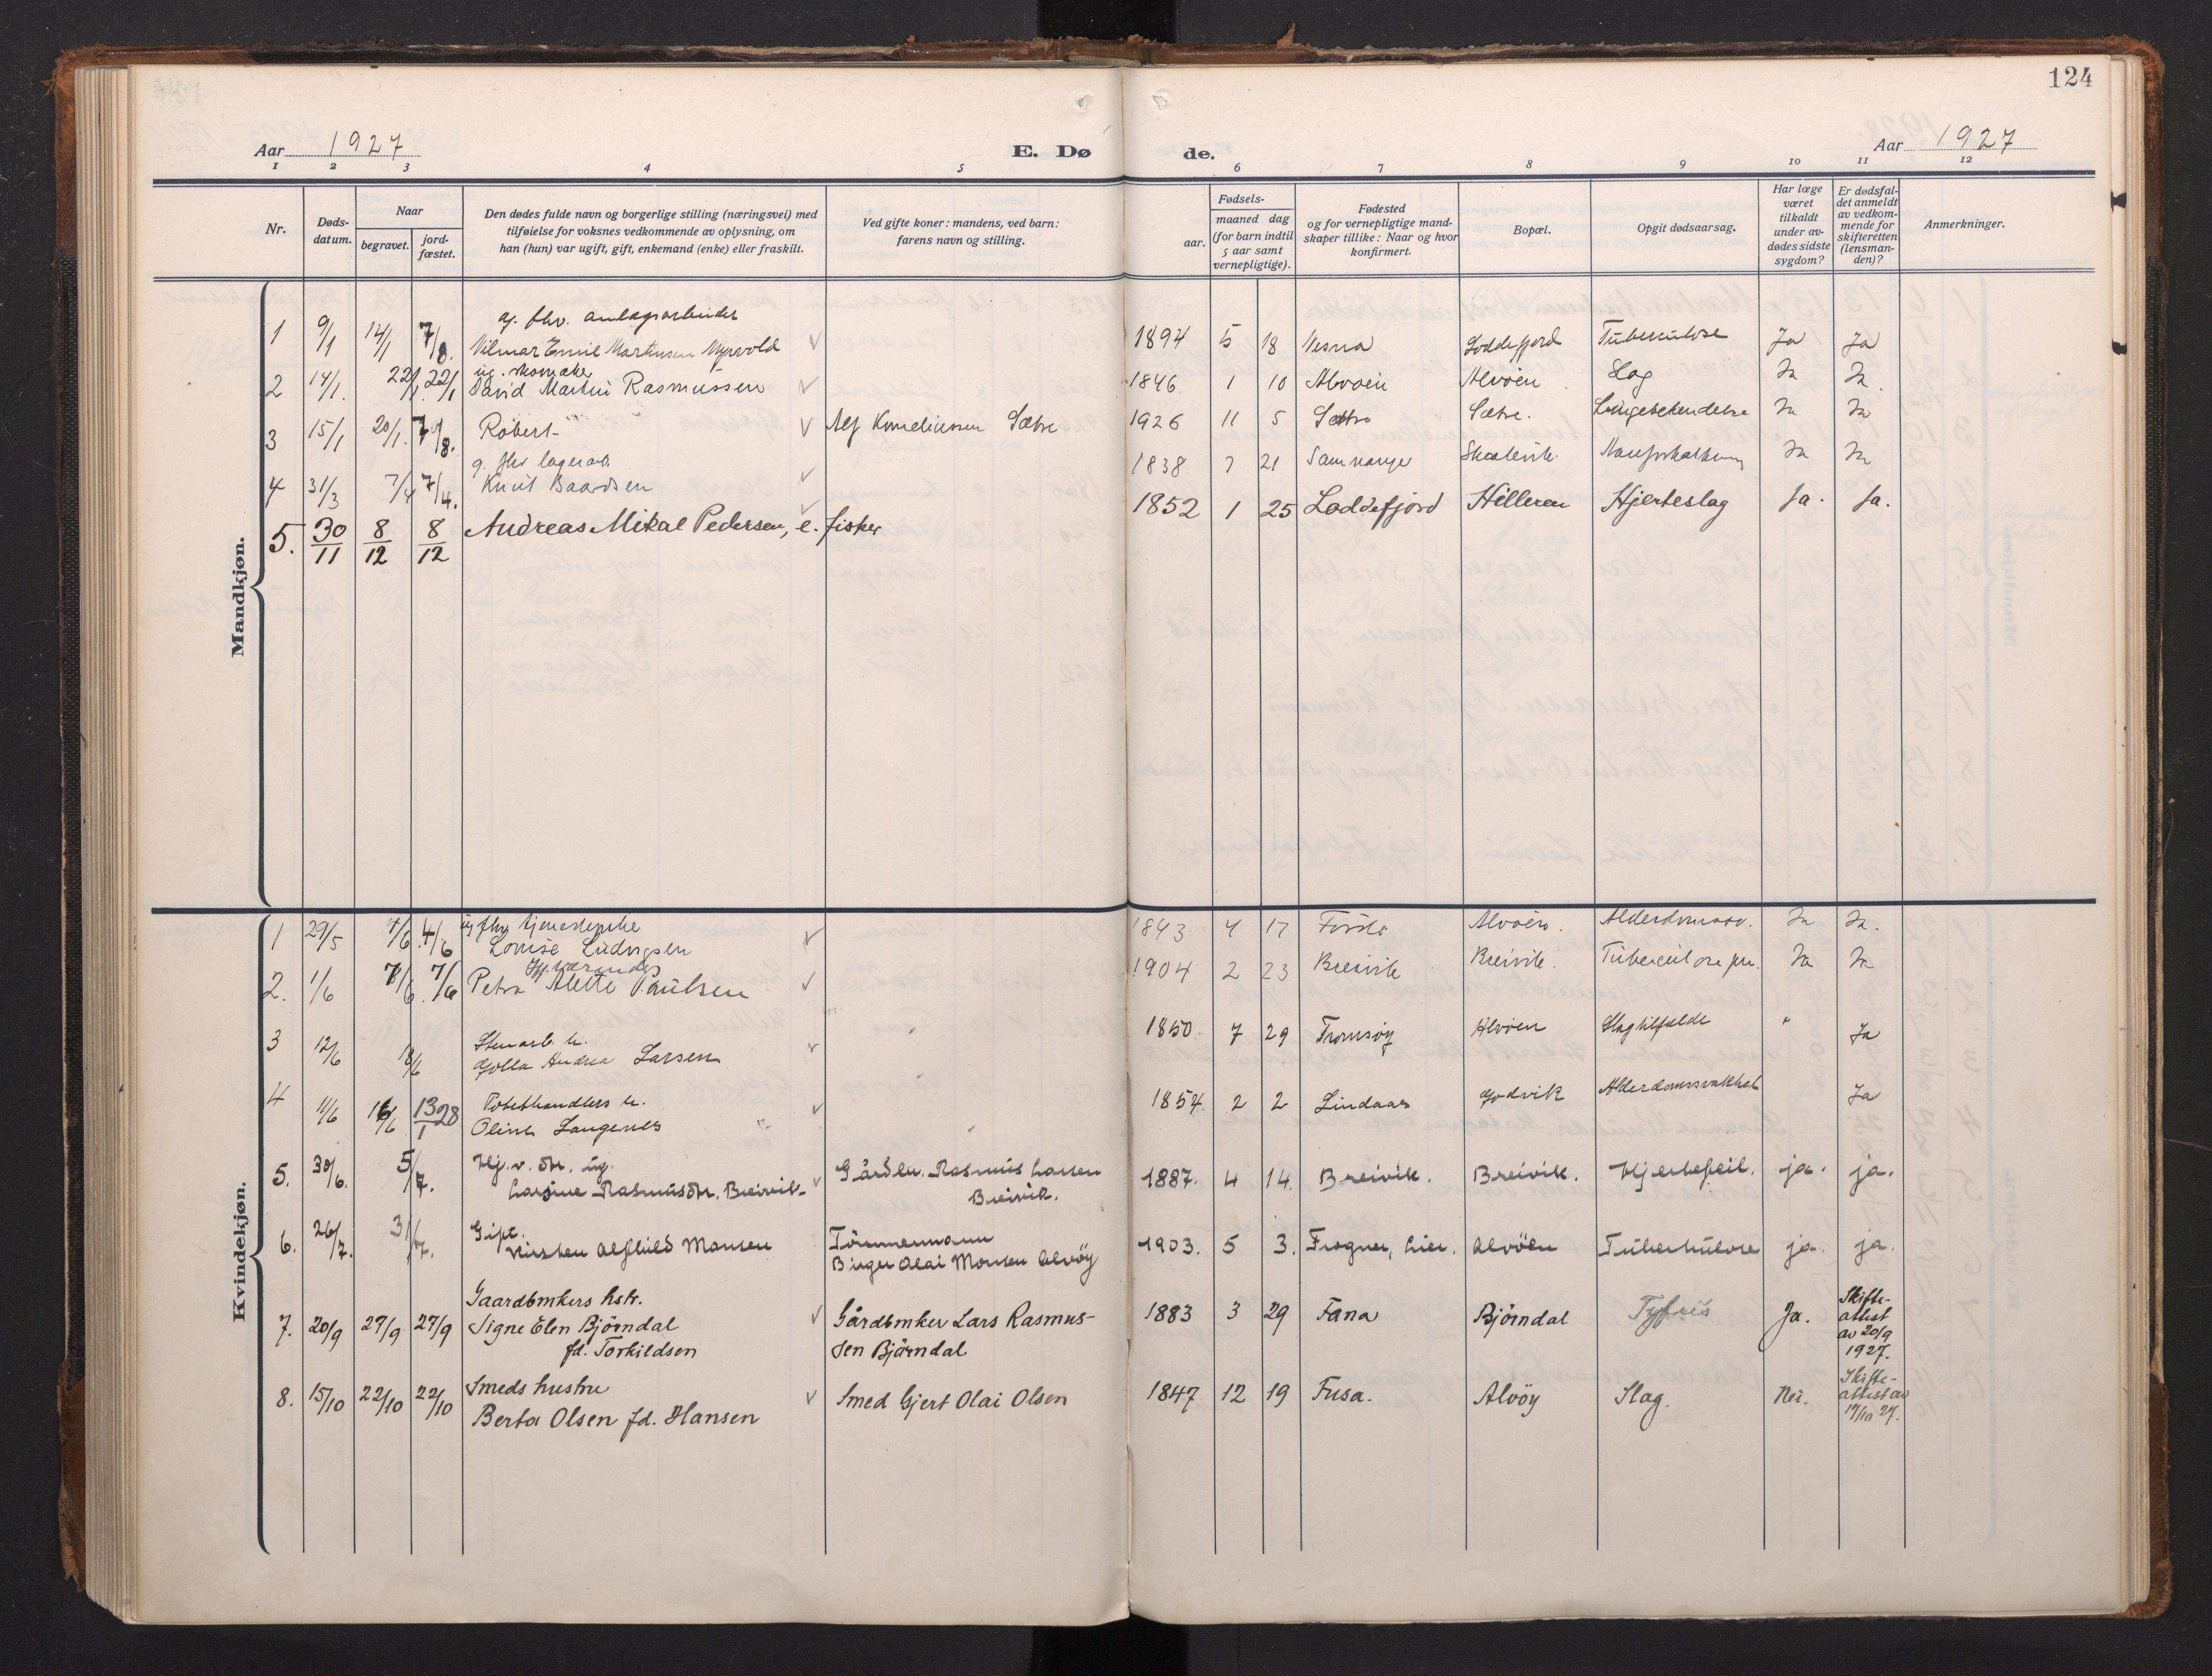 124
Aar 1927
E. Dø de.
Aar 1927
1 2 3 4 5 6 7 8 9 10 11 12
Nr.
Døds-
datum.
Naar
begravet.
jord-
fæstet.
Den dødes fulde navn og borgerlige stilling (næringsvei) med
tilføielse for voksnes vedkommende av oplysning, om
han (hun) var ugift, gift, enkemand (enke) eller fraskilt.
Ved gifte koner: mandens, ved barn:
farens navn og stilling.
Fødsels-
aar.
maaned dag
(for barn indtil
5 aar samt
vernepligtige).
Fødested
og for vernepligtige mand-
skaper tillike: Naar og hvor
konfirmert.
Bopæl.
Opgit dødsaarsag.
Har læge
været
tilkaldt
under av-
dødes sidste
sygdom?
Er dødsfal-
det anmeldt
av vedkom-
mende for
skifteretten
(lensman-
den)?
Anmerkninger.
Mandkjøn.
g. fhv. anlægsarbeider
1 9/1 14/1 7/8. Vilmar Emil Martinsen Myrvold 1894 5 18 Vesna Loddefjord Tuberculose Ja Ja
ug. skomaker
2 14/1. 22/1. 22/1 David Martin Rasmussen 1846 1 10 Alvøen Alvøen Slag Ja Ja.
3 15/1 20/1. 7/8. Robert Alf Korneliussen Sætre 1926 11 5 Sætre Sætre. Ja Ja
g. fhv lagerarb.
4 31/3 7/4 7/4. Knut Baardsen 1838 7 21 Samnanger Ja Ja
5. 30/11 8/12 8/12 Andreas Mikal Pedersen, e. fisker 1852 1 25 Loddefjord Hilleren Hjerteslag Ja. Ja.
Kvindekjøn.
ug fhv tjenestepike
1 29/5 4/6 4/6 Lovise Ludvigsen 1843 4 17 Førde Alvøen. Alderdomssv. Ja Ja.
Hj. værende
2. 1/6 7/6 7/6 Petra Alette Paulsen 1904 2 23 Breivik Breivik. Tuberculose pu. Ja Ja
Stenarb. h.
3 12/6 18/6 Golla Andrea Larsen 1850 7 29 Tromsøy Alvøen Slagtilfælde " Ja
h.
4 11/6 16/6 13/1 28 Oline Langenes 1854. 2 2 Lindaas Godvik Alderdomssvakhet Ja
Hj. v. dtr. ug.
5. 30/6. 5/7. Larsine Rasmusdtr. Breivik Gårdbr. Rasmus Larsen
Breivik. 1887. 4 14. Breivik. Breivik. Hjertefeil. ja. ja.
Gift.
6. 26/7. 31/7. Kirsten Alfhild Monsen Tömmermann
Birger Olai Monsen Alvöy 1903. 5 3. Frogner, Lier. Alvöen Tuberkulose ja. ja.
Gaardbrukers hstr.
7. 20/9 27/9 27/9 Signe Elen Bjørndal
fd. Torkildsen Gårdbruker Lars Rasmus-
sen Bjørndal 1883 3 29 Fana Bjørndal Tyfus Ja. Skifte-
attest
av 20/9
1927.
Smeds hustru
8. 15/10 22/10 22/10 Berta Olsen fd. Hansen Smed Gjert Olai Olsen 1847 12 19 Fusa. Alvöy Slag. Nei. Skifte-
attest av
17/10 27.